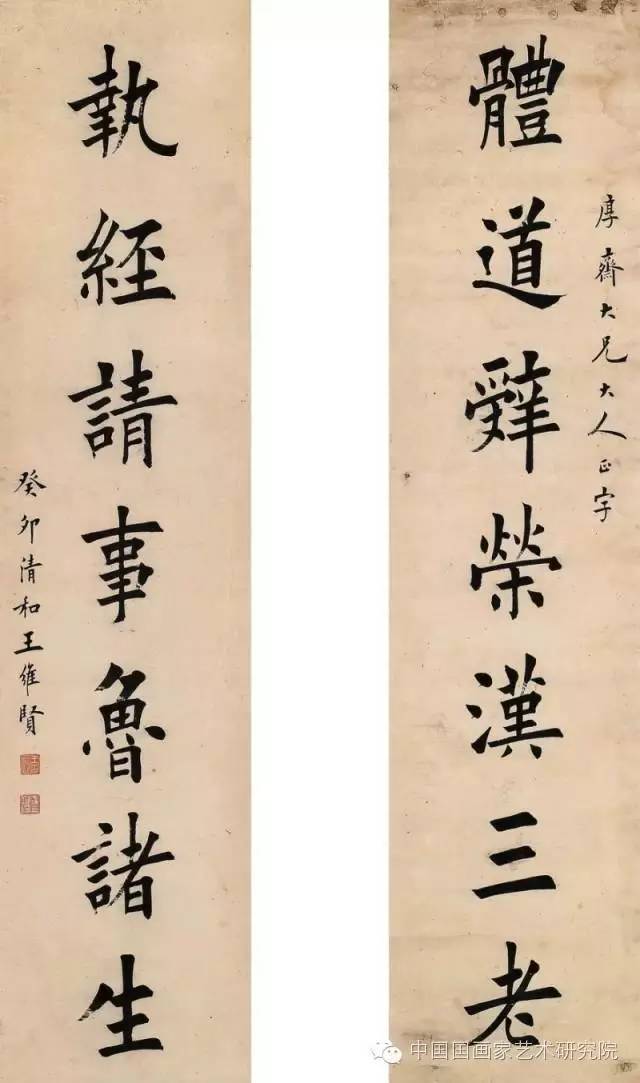 體道辤榮漢三老
厚齋大兄大人正字
執經請事魯諸生
癸卯清和王維賢
中国国画家艺术研究院